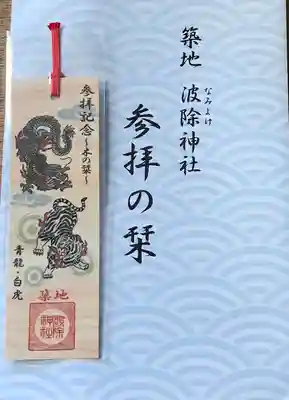 築地 波除神社
なみよけ
参拝の栞
参拝記念
～木の栞～
青龍・白虎
築地
波除神社